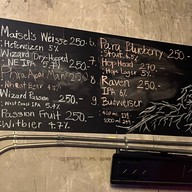 Maisel's Weisse 250.-
: Hefeweizen 5%
Wizard (Dry-Hopped)
: NE IPA 7% 270.-
Man 250.-
Wheat Beer 4%
Wizard Passon 250.-
: West Coast IPA 5.4%
Passion Fruit 250.-
Witbier 4.7%
6. Para Blueberry 250.-
: Stout 6%
7. Hop Head 270.-
: Hop Lager 5%
8. Raven 250.-
IPA 6%
9. Budweiser